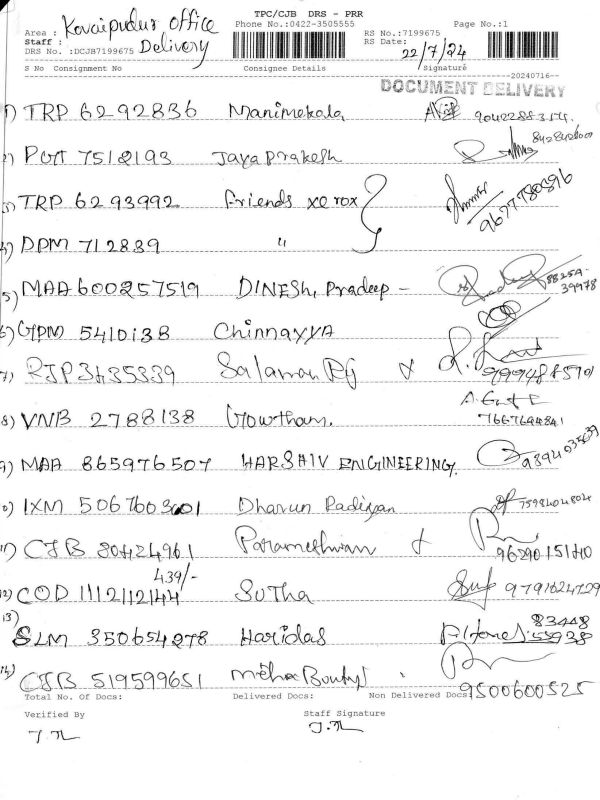 TPC/CJB DRS - PRR
Area : Kovaipudur Office Phone No.:0422-3505555 Page No.:1
Staff : Delivery RS No.:7199675
DRS No. :DCJB7199675 RS Date: 22/7/24
S No Consignment No Consignee Details Signature
--20240716--
DOCUMENT DELIVERY
1) TRP 6292836 Manimekala
2) POT 7512193 Jaya Prakash 8428428001
3) TRP 6293992 Friends xerox 9677780896
4) DPM 712839 "
5) MAA 600257519 DINESH, Pradeep - 88259-39978
6) GPM 5410138 Chinnayya
7) RJP 3635339 Salaman Raj
8) VNB 2788138 Gowtham. 7667694841
9) MAA 865976507 HARSHIV ENGINEERING. 9894035639
10) IXM 506760 Dharun 7598404804
11) CJB 80424961 Parameshwaran 9629015110
439/-
12) COD 111211214 Sutha 9791024729
13) SLM 350654278 Haridas 83448 55938
14) CJB 519599651 9500600525
Total No. Of Docs: Delivered Docs: Non Delivered Docs:
Verified By Staff Signature